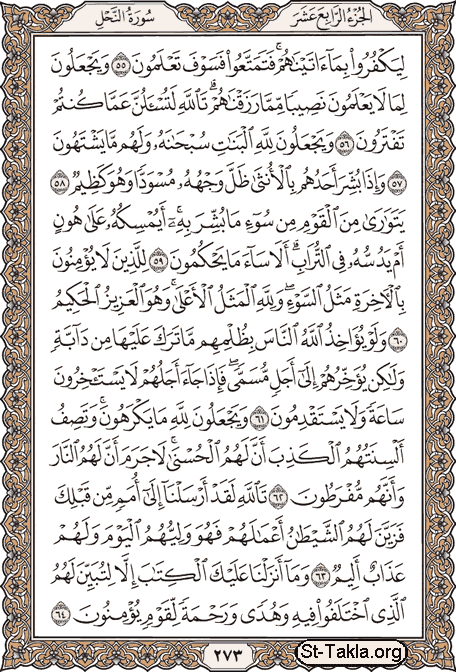 الجزء الرابع عشر
سورة النحل
لِيَكْفُرُوا۟ بِمَآ ءَاتَيْنَٰهُمْ ۚ فَتَمَتَّعُوا۟ فَسَوْفَ تَعْلَمُونَ ٥٥ وَيَجْعَلُونَ
لِمَا لَا يَعْلَمُونَ نَصِيبًا مِّمَّا رَزَقْنَٰهُمْ ۗ تَٱللَّهِ لَتُسْـَٔلُنَّ عَمَّا كُنتُمْ
تَفْتَرُونَ ٥٦ وَيَجْعَلُونَ لِلَّهِ ٱلْبَنَٰتِ سُبْحَٰنَهُۥ ۙ وَلَهُم مَّا يَشْتَهُونَ
٥٧ وَإِذَا بُشِّرَ أَحَدُهُم بِٱلْأُنثَىٰ ظَلَّ وَجْهُهُۥ مُسْوَدًّا وَهُوَ كَظِيمٌ ٥٨
يَتَوَٰرَىٰ مِنَ ٱلْقَوْمِ مِن سُوٓءِ مَا بُشِّرَ بِهِۦٓ ۚ أَيُمْسِكُهُۥ عَلَىٰ هُونٍ
أَمْ يَدُسُّهُۥ فِى ٱلتُّرَابِ ۗ أَلَا سَآءَ مَا يَحْكُمُونَ ٥٩ لِلَّذِينَ لَا يُؤْمِنُونَ
بِٱلْءَاخِرَةِ مَثَلُ ٱلسَّوْءِ ۖ وَلِلَّهِ ٱلْمَثَلُ ٱلْأَعْلَىٰ ۚ وَهُوَ ٱلْعَزِيزُ ٱلْحَكِيمُ
٦٠ وَلَوْ يُؤَاخِذُ ٱللَّهُ ٱلنَّاسَ بِظُلْمِهِم مَّا تَرَكَ عَلَيْهَا مِن دَآبَّةٍ
وَلَٰكِن يُؤَخِّرُهُمْ إِلَىٰٓ أَجَلٍ مُّسَمًّى ۖ فَإِذَا جَآءَ أَجَلُهُمْ لَا يَسْتَـْٔخِرُونَ
سَاعَةً ۖ وَلَا يَسْتَقْدِمُونَ ٦١ وَيَجْعَلُونَ لِلَّهِ مَا يَكْرَهُونَ ۚ وَتَصِفُ
أَلْسِنَتُهُمُ ٱلْكَذِبَ أَنَّ لَهُمُ ٱلْحُسْنَىٰ ۖ لَا جَرَمَ أَنَّ لَهُمُ ٱلنَّارَ
وَأَنَّهُم مُّفْرَطُونَ ٦٢ تَٱللَّهِ لَقَدْ أَرْسَلْنَآ إِلَىٰٓ أُمَمٍ مِّن قَبْلِكَ
فَزَيَّنَ لَهُمُ ٱلشَّيْطَٰنُ أَعْمَٰلَهُمْ فَهُوَ وَلِيُّهُمُ ٱلْيَوْمَ وَلَهُمْ
عَذَابٌ أَلِيمٌ ٦٣ وَمَآ أَنزَلْنَا عَلَيْكَ ٱلْكِتَٰبَ إِلَّا لِتُبَيِّنَ لَهُمُ
ٱلَّذِى ٱخْتَلَفُوا۟ فِيهِ ۙ وَهُدًى وَرَحْمَةً لِّقَوْمٍ يُؤْمِنُونَ ٦٤
٢٧٣
St-Takla.org